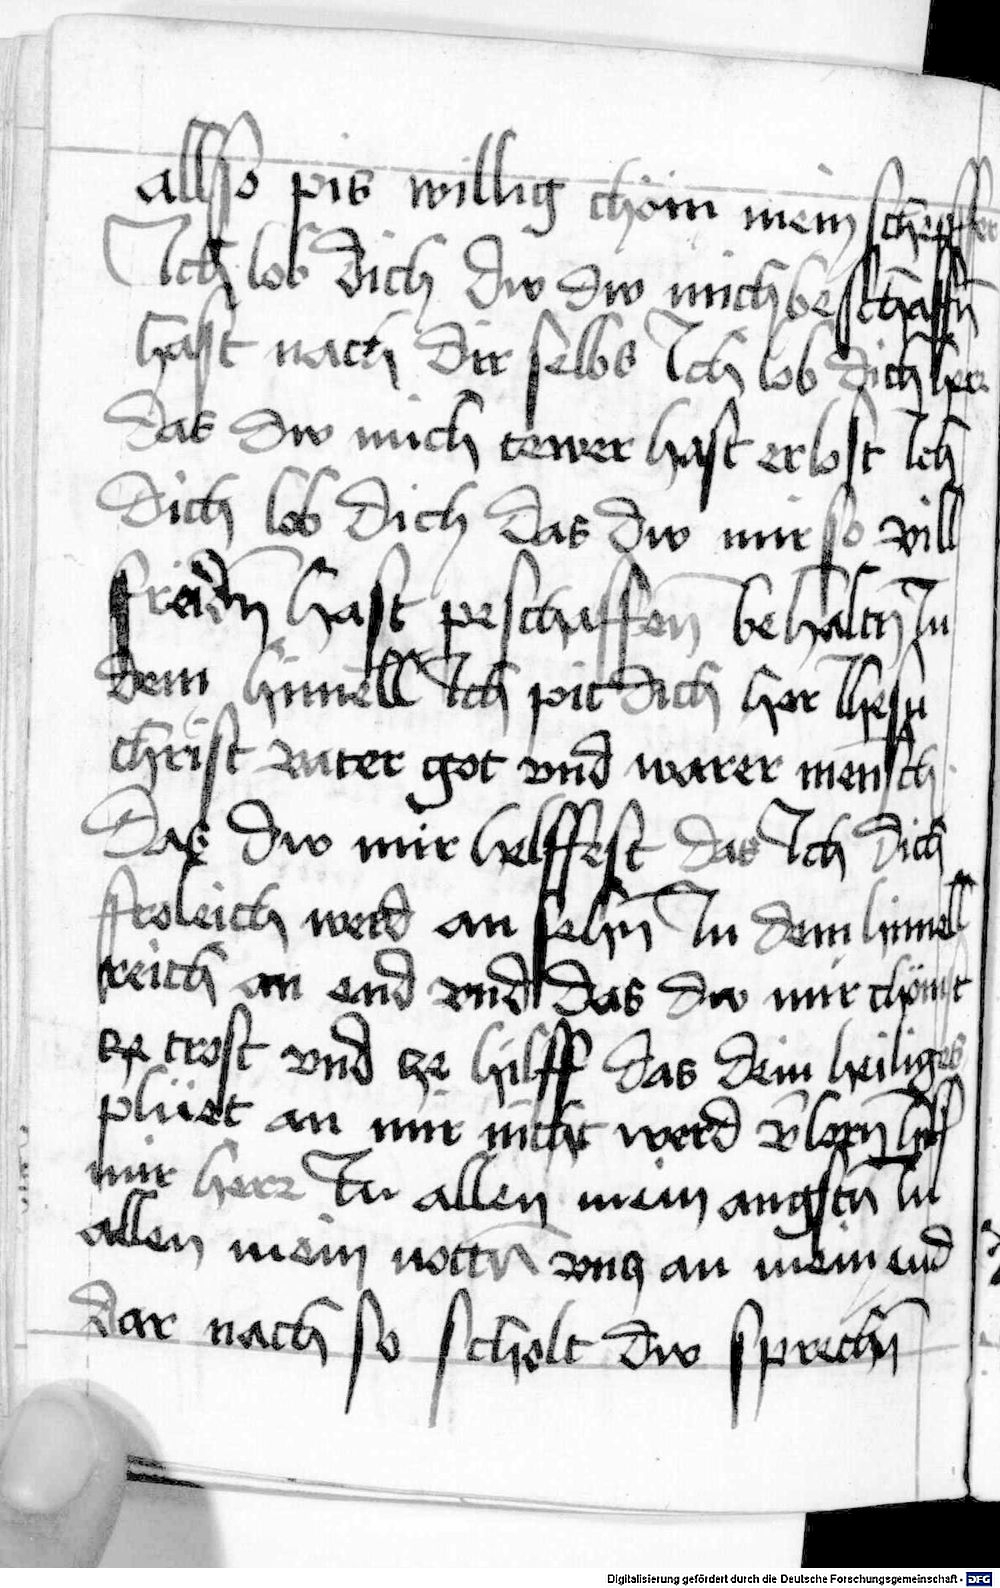 allso pis willig chöm mein schepffer
Ich lob dich dw dw mich beschaffn̄
hast nach dir selbs Ich lob dich herr
das dw mich tewer hast erlost Ich
dich lob dich das dw mir so vill
freẅdn̄ hast peschaffen behaltn̄ In
dem himell Ich pit dich her Ihesu
christ vater got vnd warer mensch
Das dw mir helffest das Ich dich
froleich werd an sehn̄ In dem himell
reich an end vnd das dw mir chömst
ze trost vnd ze hilff das dein heiliges
plüet an mir nicht werd v̄lorn̄ hilff
mir herr In allen mein angstn̄ In
allen mein nottn̄ vncz an mein end
Dar nach so scholt dw sprechn̄
Digitalisierung gefördert durch die Deutsche Forschungsgemeinschaft - DFG